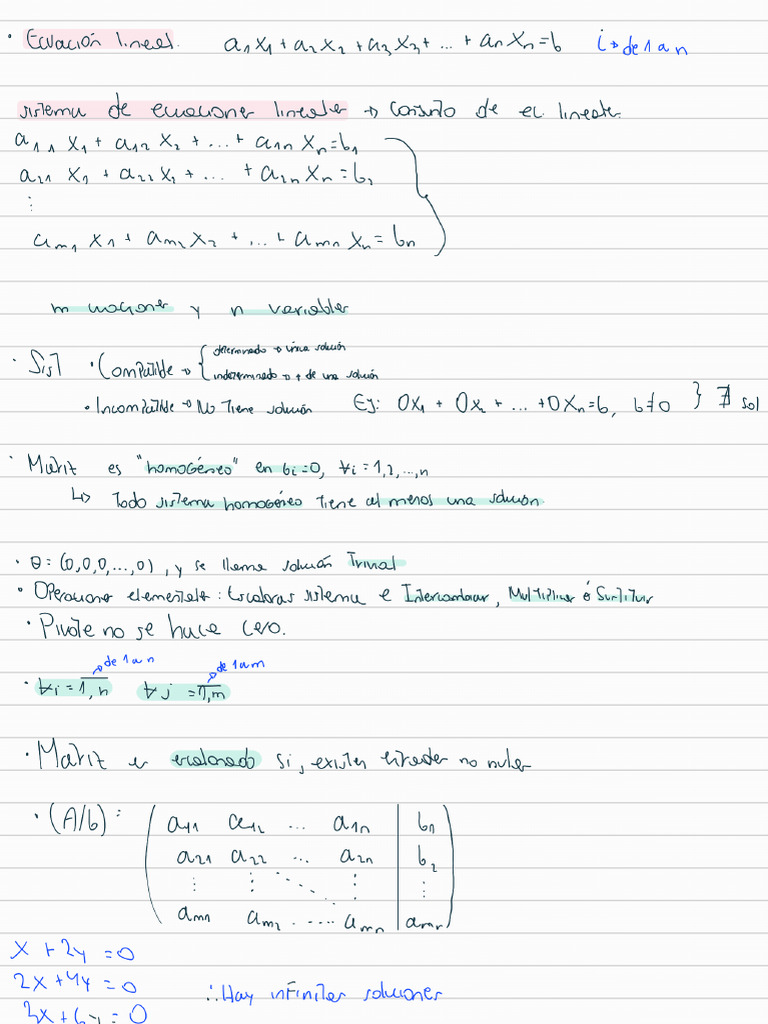 · Ecuación lineal. a₁x₁ + a₂x₂ + a₃x₃ + ... + aₙxₙ = b i → de 1 a n
sistema de ecuaciones lineales → Conjunto de ec. lineales.
a₁₁ x₁ + a₁₂ x₂ + ... + a₁ₙ xₙ = b₁
a₂₁ x₁ + a₂₂ x₂ + ... + a₂ₙ xₙ = b₂
⋮
aₘ₁ x₁ + aₘ₂ x₂ + ... + aₘₙ xₙ = bₙ
m ecuaciones y n variables
· Sist · Compatible → { determinado → única solución
indeterminado → + de una solución
· Incompatible → No tiene solución Ej: 0x₁ + 0x₂ + ... + 0xₙ = b, b≠0 } ∄ sol
· Matriz es "homogéneo" en bᵢ=0, ∀i = 1,2,...,n
↳ Todo sistema homogéneo tiene al menos una solución.
· θ = (0,0,0,...,0), y se llama solución Trivial
· Operaciones elementales: sistema e Intercambiar, Multiplicar ó Sustituir
· Pivote no se hace cero.
de 1 a n de 1 a m
· ∀i = 1,n ∀j = 1,m
· Matriz es escalonado si, existen no nulas
· (A/b) = ( a₁₁ a₁₂ ... a₁ₙ | b₁ )
a₂₁ a₂₂ ... a₂ₙ | b₂
⋮ ⋮ ⋱ ⋮ | ⋮
aₘ₁ aₘ₂ ..... aₘₙ |
x + 2y = 0
2x + 4y = 0
∴ Hay infinitas soluciones
3x + 6y = 0